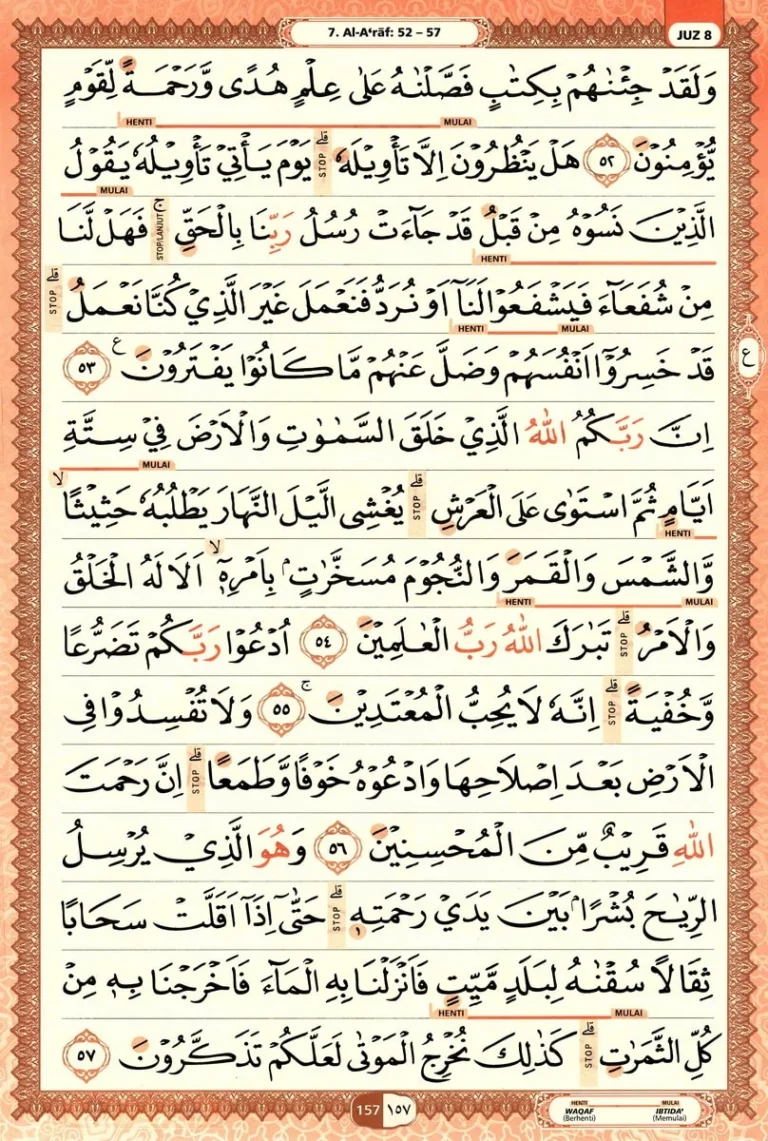 7. Al-A‘rāf: 52 – 57
JUZ 8
وَلَقَدْ جِئْنٰهُمْ بِكِتٰبٍ فَصَّلْنٰهُ عَلٰى عِلْمٍ هُدًى وَّرَحْمَةً لِّقَوْمٍ
HENTI MULAI
يُّؤْمِنُوْنَ ٥٢ هَلْ يَنْظُرُوْنَ اِلَّا تَأْوِيْلَهٗ ۗ STOP يَوْمَ يَأْتِيْ تَأْوِيْلُهٗ يَقُوْلُ
MULAI
الَّذِيْنَ نَسُوْهُ مِنْ قَبْلُ قَدْ جَاۤءَتْ رُسُلُ رَبِّنَا بِالْحَقِّ ۚ STOP/LANJUT فَهَلْ لَّنَا
HENTI
مِنْ شُفَعَاۤءَ فَيَشْفَعُوْا لَنَآ اَوْ نُرَدُّ فَنَعْمَلَ غَيْرَ الَّذِيْ كُنَّا نَعْمَلُ ۗ STOP
HENTI MULAI
قَدْ خَسِرُوْٓا اَنْفُسَهُمْ وَضَلَّ عَنْهُمْ مَّا كَانُوْا يَفْتَرُوْنَ ع ٥٣
ع
اِنَّ رَبَّكُمُ اللّٰهُ الَّذِيْ خَلَقَ السَّمٰوٰتِ وَالْاَرْضَ فِيْ سِتَّةِ
MULAI
اَيَّامٍ ثُمَّ اسْتَوٰى عَلَى الْعَرْشِ ۗ STOP يُغْشِى الَّيْلَ النَّهَارَ يَطْلُبُهٗ حَثِيْثًا ۙ
HENTI
وَّالشَّمْسَ وَالْقَمَرَ وَالنُّجُوْمَ مُسَخَّرٰتٍۢ بِاَمْرِهٖٓ ۙ اَلَا لَهُ الْخَلْقُ
HENTI MULAI
وَالْاَمْرُ ۗ STOP تَبٰرَكَ اللّٰهُ رَبُّ الْعٰلَمِيْنَ ٥٤ اُدْعُوْا رَبَّكُمْ تَضَرُّعًا
وَّخُفْيَةً ۗ STOP اِنَّهٗ لَا يُحِبُّ الْمُعْتَدِيْنَ ۚ ٥٥ وَلَا تُفْسِدُوْا فِى
الْاَرْضِ بَعْدَ اِصْلَاحِهَا وَادْعُوْهُ خَوْفًا وَّطَمَعًا ۗ STOP اِنَّ رَحْمَتَ
اللّٰهِ قَرِيْبٌ مِّنَ الْمُحْسِنِيْنَ ٥٦ وَهُوَ الَّذِيْ يُرْسِلُ
الرِّيٰحَ بُشْرًاۢ بَيْنَ يَدَيْ رَحْمَتِهٖ ۗ STOP حَتّٰٓى اِذَآ اَقَلَّتْ سَحَابًا
ثِقَالًا سُقْنٰهُ لِبَلَدٍ مَّيِّتٍ فَاَنْزَلْنَا بِهِ الْمَاۤءَ فَاَخْرَجْنَا بِهٖ مِنْ
HENTI MULAI
كُلِّ الثَّمَرٰتِ ۗ STOP كَذٰلِكَ نُخْرِجُ الْمَوْتٰى لَعَلَّكُمْ تَذَكَّرُوْنَ ٥٧
157 ١٥٧
HENTI MULAI
WAQAF IBTIDA'
(Berhenti) (Memulai)